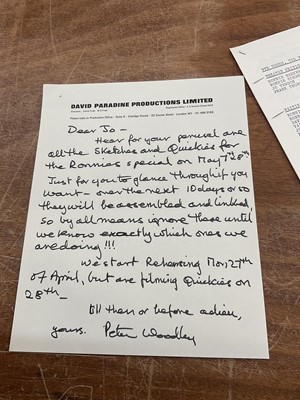 DAVID PARADINE PRODUCTIONS LIMITED
Dear Jo —
Hear for your perusal are
all the Sketches and Quickies for
the Ronnies special on May
Just for you to glance through if you
want — over the next 10 days or so
they will be assembled and linked
so by all means ignore these until
we know exactly which ones we
are doing!!!
We start Rehearsing Mon, 27th
of April, but are filming Quickies on
28th —
till then or before adieu,
yours. Peter